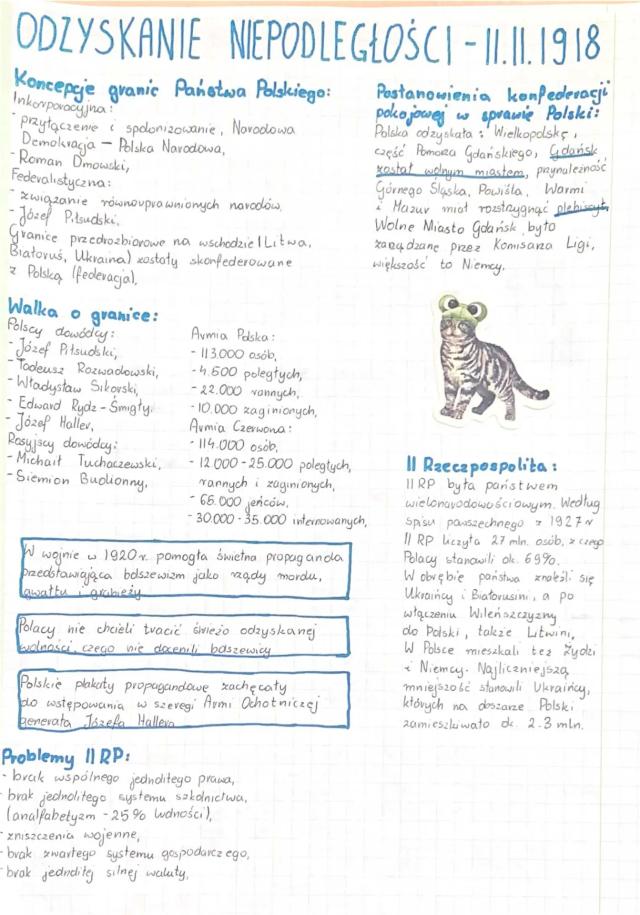 ODZYSKANIE NIEPODLEGŁOŚCI - 11.11.1918
Koncepcje granic Państwa Polskiego:
Inkorporacyjna:
- przyłączenie i spolonizowanie, Narodowa
Demokracja — Polska Narodowa,
- Roman Dmowski,
Federalistyczna:
- związanie równouprawnionych narodów.
- Józef Piłsudski,
Granice przedrozbiorowe na wschodzie (Litwa,
Białoruś, Ukraina) zostały skonfederowane
z Polską (federacja),
Walka o granice:
Polscy dowódcy:
- Józef Piłsudski,
- Tadeusz Rozwadowski,
- Władysław Sikorski,
- Edward Rydz - Śmigły.
- Józef Haller,
Rosyjscy dowódcy:
- Michaił Tuchaczewski,
- Siemion Budionny,
Armia Polska:
- 113.000 osób,
- 4.500 poległych,
- 22.000 rannych,
- 10.000 zaginionych,
Armia Czerwona:
- 114.000 osób,
- 12.000-25.000 poległych,
rannych i zaginionych,
- 65.000 jeńców,
- 30.000-35.000 internowanych,
W wojnie w 1920 r. pomogła świetna propaganda
przedstawiająca bolszewizm jako rządy mordu,
gwałtu i grabieży
Polacy nie chcieli tracić świeżo odzyskanej
wolności, czego nie docenili bolszewicy
Polskie plakaty propagandowe zachęcały
do wstępowania w szeregi Armi Ochotniczej
generała Józefa Hallera
Problemy II RP:
- brak wspólnego jednolitego prawa,
- brak jednolitego systemu szkolnictwa,
(analfabetyzm - 25% ludności),
- zniszczenia wojenne,
- brak zwartego systemu gospodarczego,
- brak jednolitej silnej waluty,
Postanowienia konfederacji
pokojowej w sprawie Polski:
Polska odzyskała: Wielkopolskę,
część Pomorza Gdańskiego, Gdańsk
został wolnym miastem, przynależność
Górnego Śląska, Powiśla, Warmi
i Mazur miał rozstrzygnąć plebiscyt,
Wolne Miasto Gdańsk było
zarządzane przez Komisarza Ligi,
większość to Niemcy.
II Rzeczpospolita:
II RP była państwem
wielonarodowościowym. Według
spisu powszechnego z 1927 r
II RP liczyła 27 mln. osób, z czego
Polacy stanowili ok. 69%.
W obrębie państwa znaleźli się
Ukraińcy i Białorusini, a po
włączeniu Wileńszczyzny
do Polski, także Litwini,
W Polsce mieszkali też Żydzi
i Niemcy. Najliczniejszą
mniejszość stanowili Ukraińcy,
których na obszarze Polski
zamieszkiwało ok. 2-3 mln.